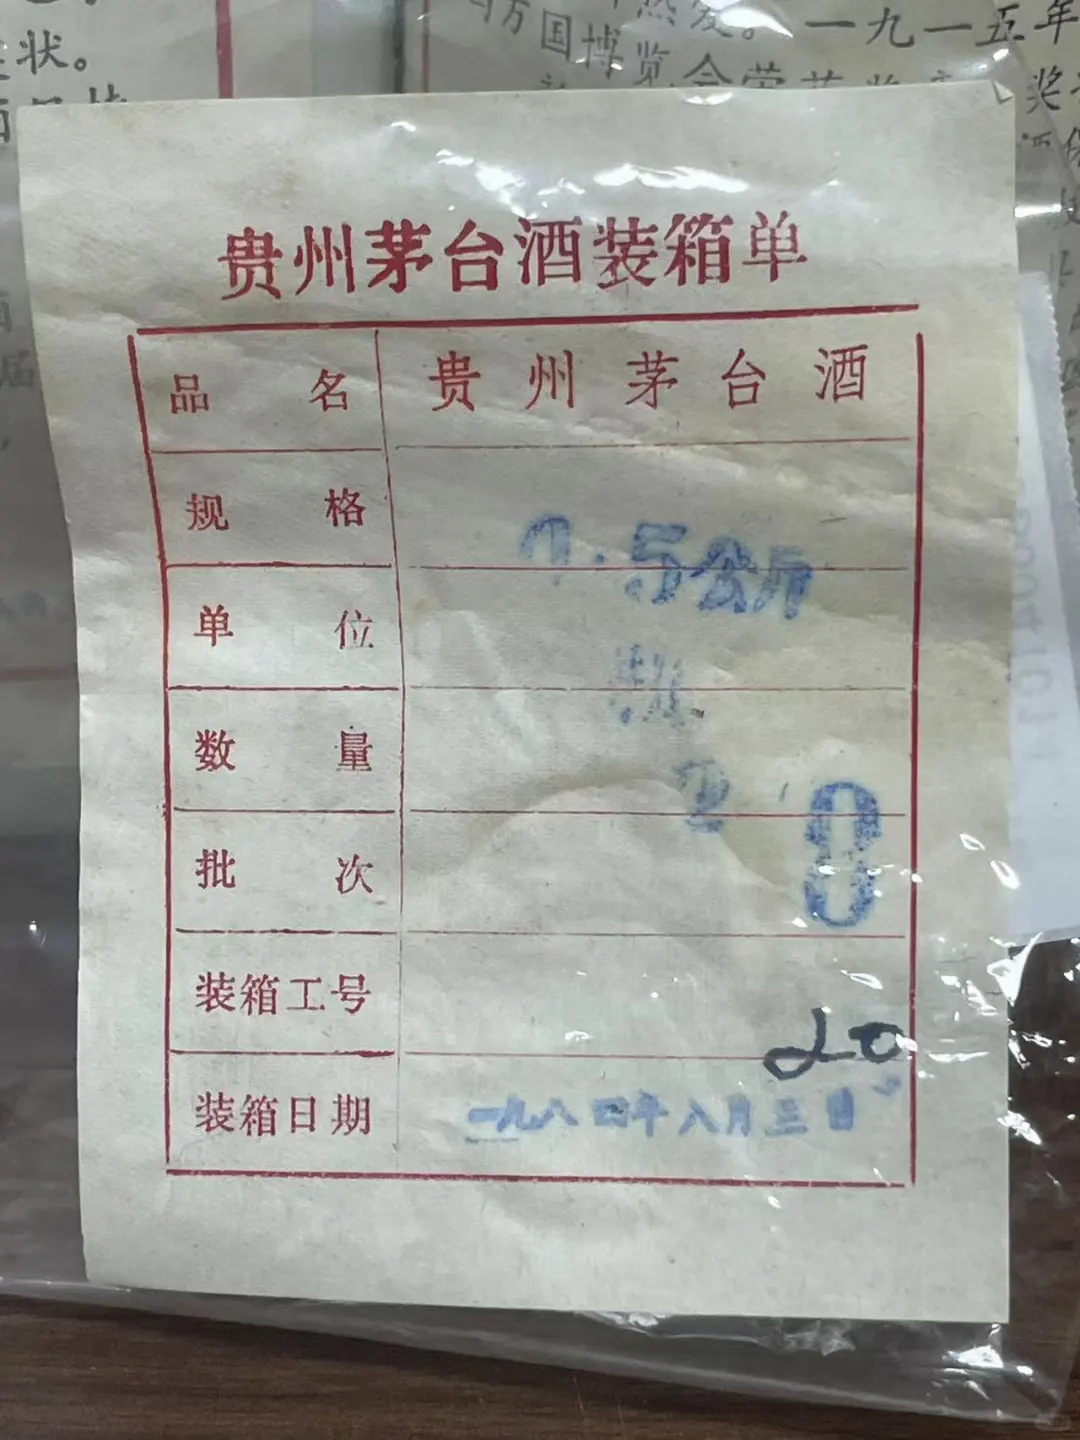 状。
万
热爱。一九一五年
国博览会荣获奖
奖
届
贵州茅台酒装箱单
品名 贵州茅台酒
规格
.5公斤
单位 瓶
数量 2
批次 8
装箱工号 20
装箱日期 一九八四年八月三日